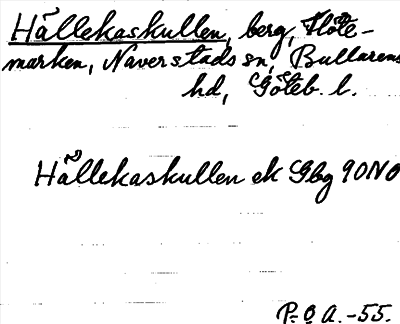 Hällekaskullen, berg, Flöte-
marken, Naverstads sn, Bullarens
hd, Göteb. l.
Hällekaskullen ek Gbg 90NO
P. O A. -55.